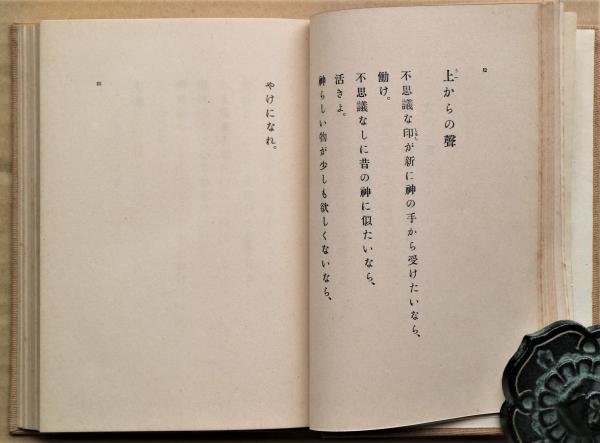 上からの聲
不思議な印が新に神の手から受けたいなら、
働け。
不思議なしに昔の神に似たいなら、
活きよ。
神らしい物が少しも欲しくないなら、
やけになれ。